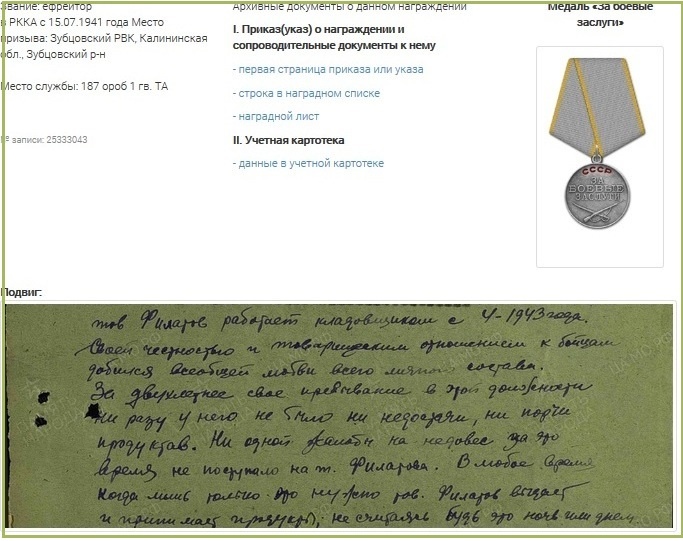 Звание: ефрейтор
в РККА с 15.07.1941 года Место
призыва: Зубцовский РВК, Калининская
обл., Зубцовский р-н
Место службы: 187 ороб 1 гв. ТА
№ записи: 25333043
Архивные документы о данном награждении
I. Приказ(указ) о награждении и
сопроводительные документы к нему
- первая страница приказа или указа
- строка в наградном списке
- наградной лист
II. Учетная картотека
- данные в учетной картотеке
Медаль «За боевые
заслуги»
СССР
ЗА
БОЕВЫЕ
ЗАСЛУГИ
Подвиг:
тов Филатов работает кладовщиком с 4-1943 года.
Своей честностью и товарищеским отношением к бойцам
добился всеобщей любви всего личного состава.
За двухлетнее свое пребывание в этой должности
ни разу у него не было ни недостачи, ни порчи
продуктав. Ни одной жалобы на недовес за это
время не поступало на т. Филатова. В любое время
когда лишь только это нужно тов. Филатов выдает
и принимает продукты, не считаясь будь это ночь или днем